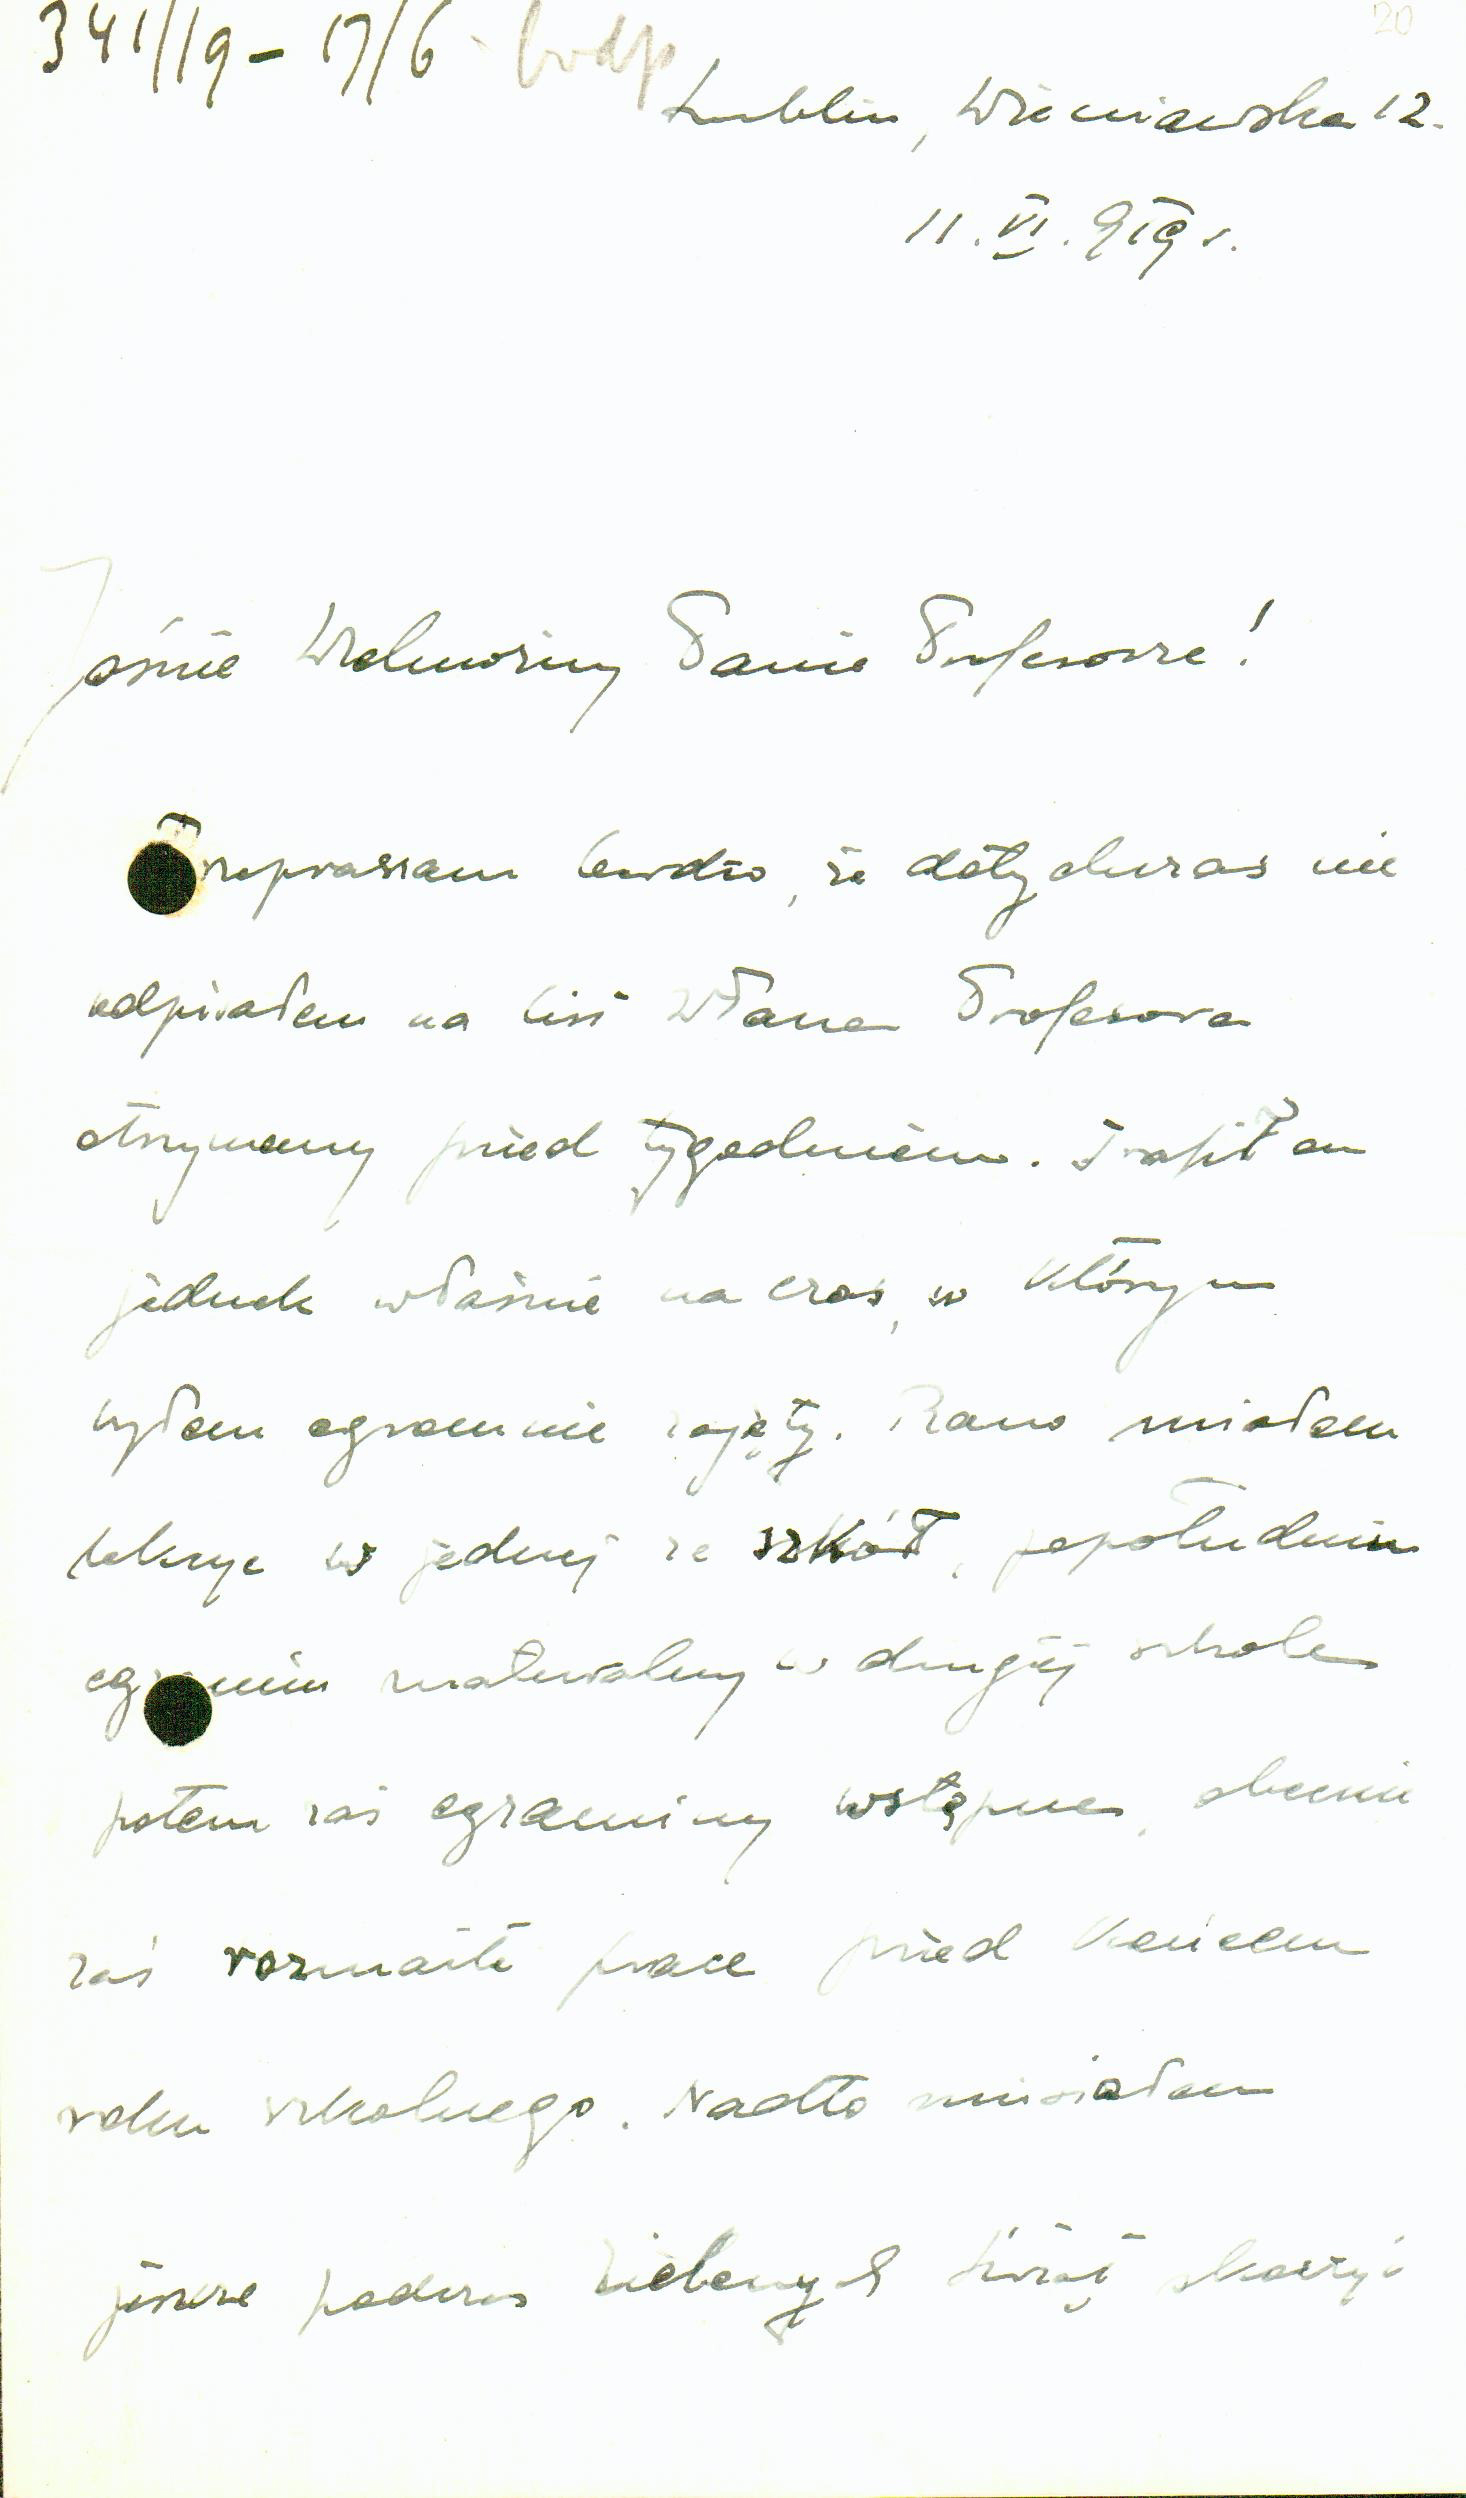 341/19 - 17/6 odp
20
Lublin, Wieniawska 12.
11.VI.919 r.
Jaśnie Wielmożny Panie Profesorze!
Przepraszam bardzo, że dotychczas nie
odpisałem na list WPana Profesora
otrzymany przed tygodniem. Trafił on
jednak właśnie na czas, w którym
byłem ogromnie zajęty. Rano miałem
lekcye w jednej ze szkół, popołudniu
egzamin maturalny w drugiej szkole
potem zaś egzaminy wstępne, obecnie
zaś rozmaite prace przed końcem
roku szkolnego. Nadto musiałem
jeszcze podczas Zielonych Świąt